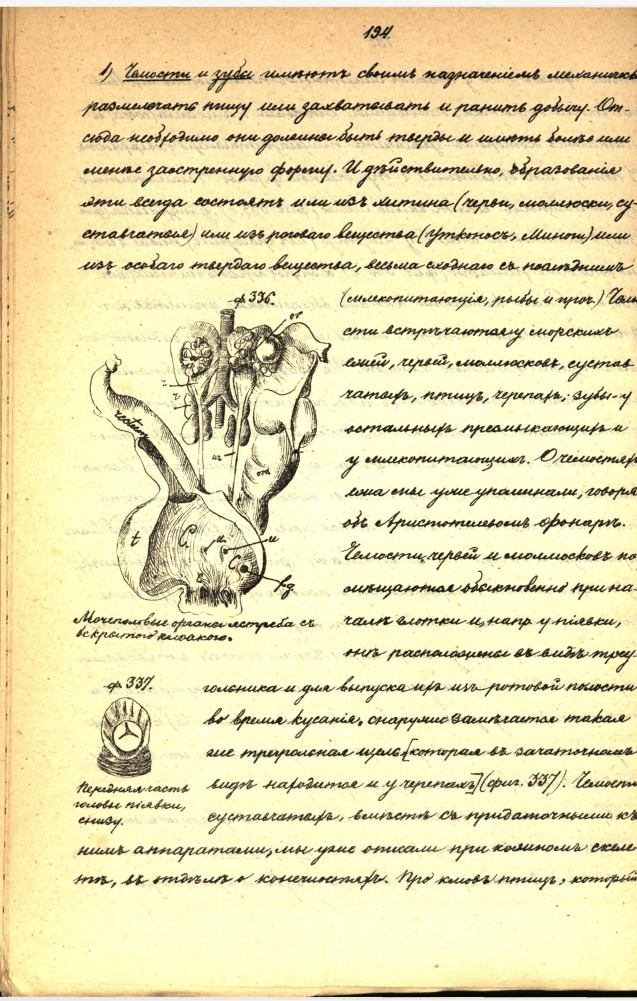 194.
1) Челюсти и зубы имѣютъ своимъ назначеніемъ механически
размельчать пищу или захватывать и ранить добычу. От-
сюда необходимо они должны быть тверды и имѣть болѣе или
менѣе заостренную форму. И дѣйствительно, образованія
эти всегда состоятъ или изъ хитина (черви, моллюски, су-
ставчатыя) или изъ рогового вещества (утконосъ, Миноги) или
изъ особаго твердаго вещества, весьма сходнаго съ послѣднимъ
ф. 336.
(млекопитающія, рыбы и проч.) Челю
сти встрѣчаются у морскихъ
ежей, червей, моллюсковъ, сустав
чатыхъ, птицъ, черепахъ; зубы-у
остальныхъ пресмыкающихся и
у млекопитающихъ. О челюстяхъ
ежа мы уже упоминали, говоря
объ Аристотелевомъ фонарѣ.
Челюсти червей и моллюсковъ по
мѣщаются обыкновенно при на-
чалѣ глотки и, напр. у піявки,
онѣ расположены въ видѣ треу
or
r
r
ur
od
rectum
t
C
u
u
C
z
bg
Мочеполовые органы ястреба съ
вскрытой клоакою.
ф. 337.
гольника и для выпуска ихъ изъ ротовой полости
во время кусанія, снаружи замѣчается такая
же треугольная щель [которая въ зачаточномъ
видѣ находится и у черепахъ] (фиг. 337). Челюсти
суставчатыхъ, вмѣстѣ съ придаточными къ
Передняя часть
головы піявки,
снизу.
нимъ аппаратами, мы уже описали при кожномъ скеле
тѣ, въ отдѣлѣ о конечностяхъ. Про клювъ птицъ, который